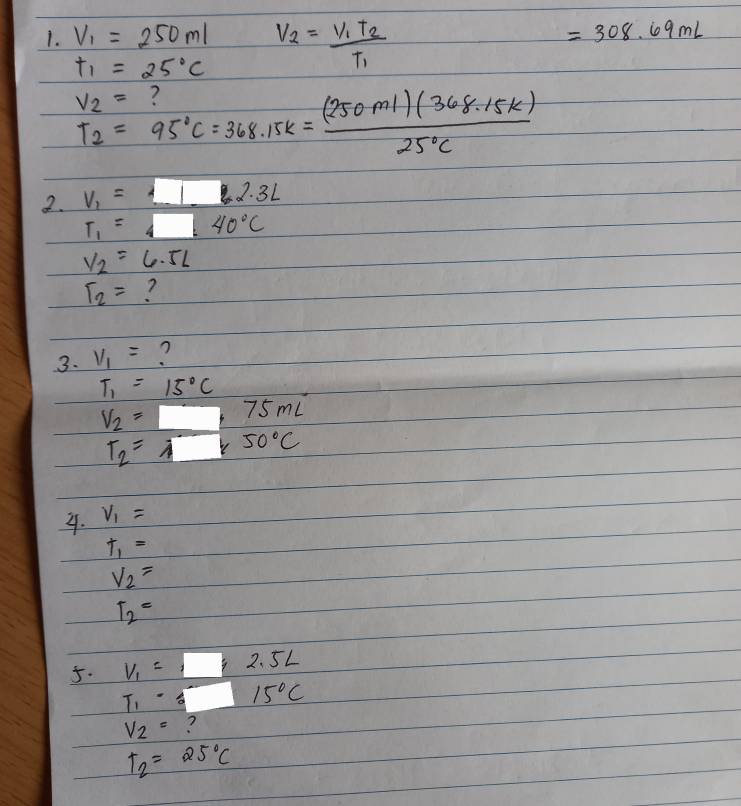 1. V₁ = 250 ml V₂ = V₁ T₂ / T₁ = 308.69 mL
t₁ = 25°C
V₂ = ?
T₂ = 95°C = 368.15K = (250 ml) (368.15K) / 25°C
2. V₁ = 2.3L
T₁ = 40°C
V₂ = 6.5L
T₂ = ?
3. V₁ = ?
T₁ = 15°C
V₂ = 75 mL
T₂ = 50°C
4. V₁ =
T₁ =
V₂ =
T₂ =
5. V₁ = 2.5L
T₁ = 15°C
V₂ = ?
T₂ = 25°C